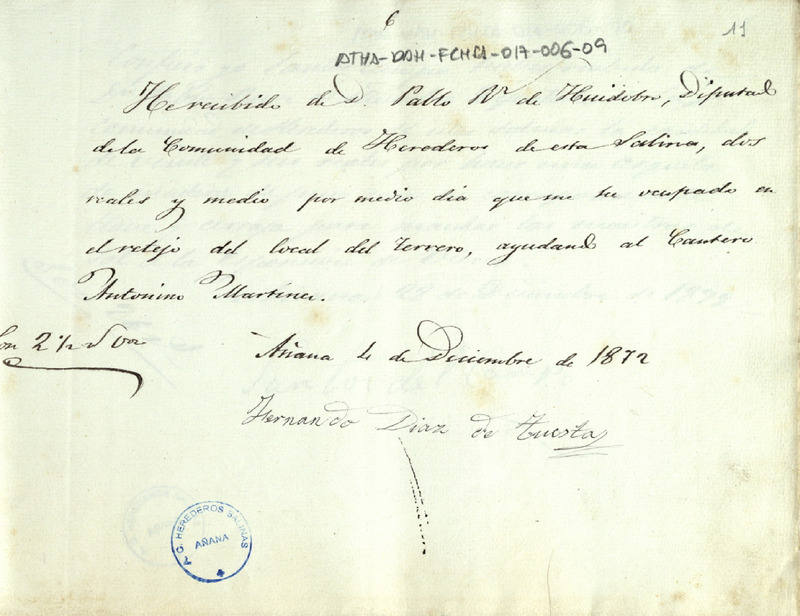 6
11
ATHA-DAH-FCHSA-017-006-09
He recibido de D. Pablo Rz de Huidobro, Diputado
de la Comunidad de Herederos de esta Salina, dos
reales y medio por medio dia que me he ocupado en
el retejo del local del terrero, ayudando al Cantero
Antonino Martinez.
Son 2 1/2 rs von
Añana 4 de Diciembre de 1872
Fernando Diaz de Tuesta
C. HEREDEROS SALINAS
AÑANA